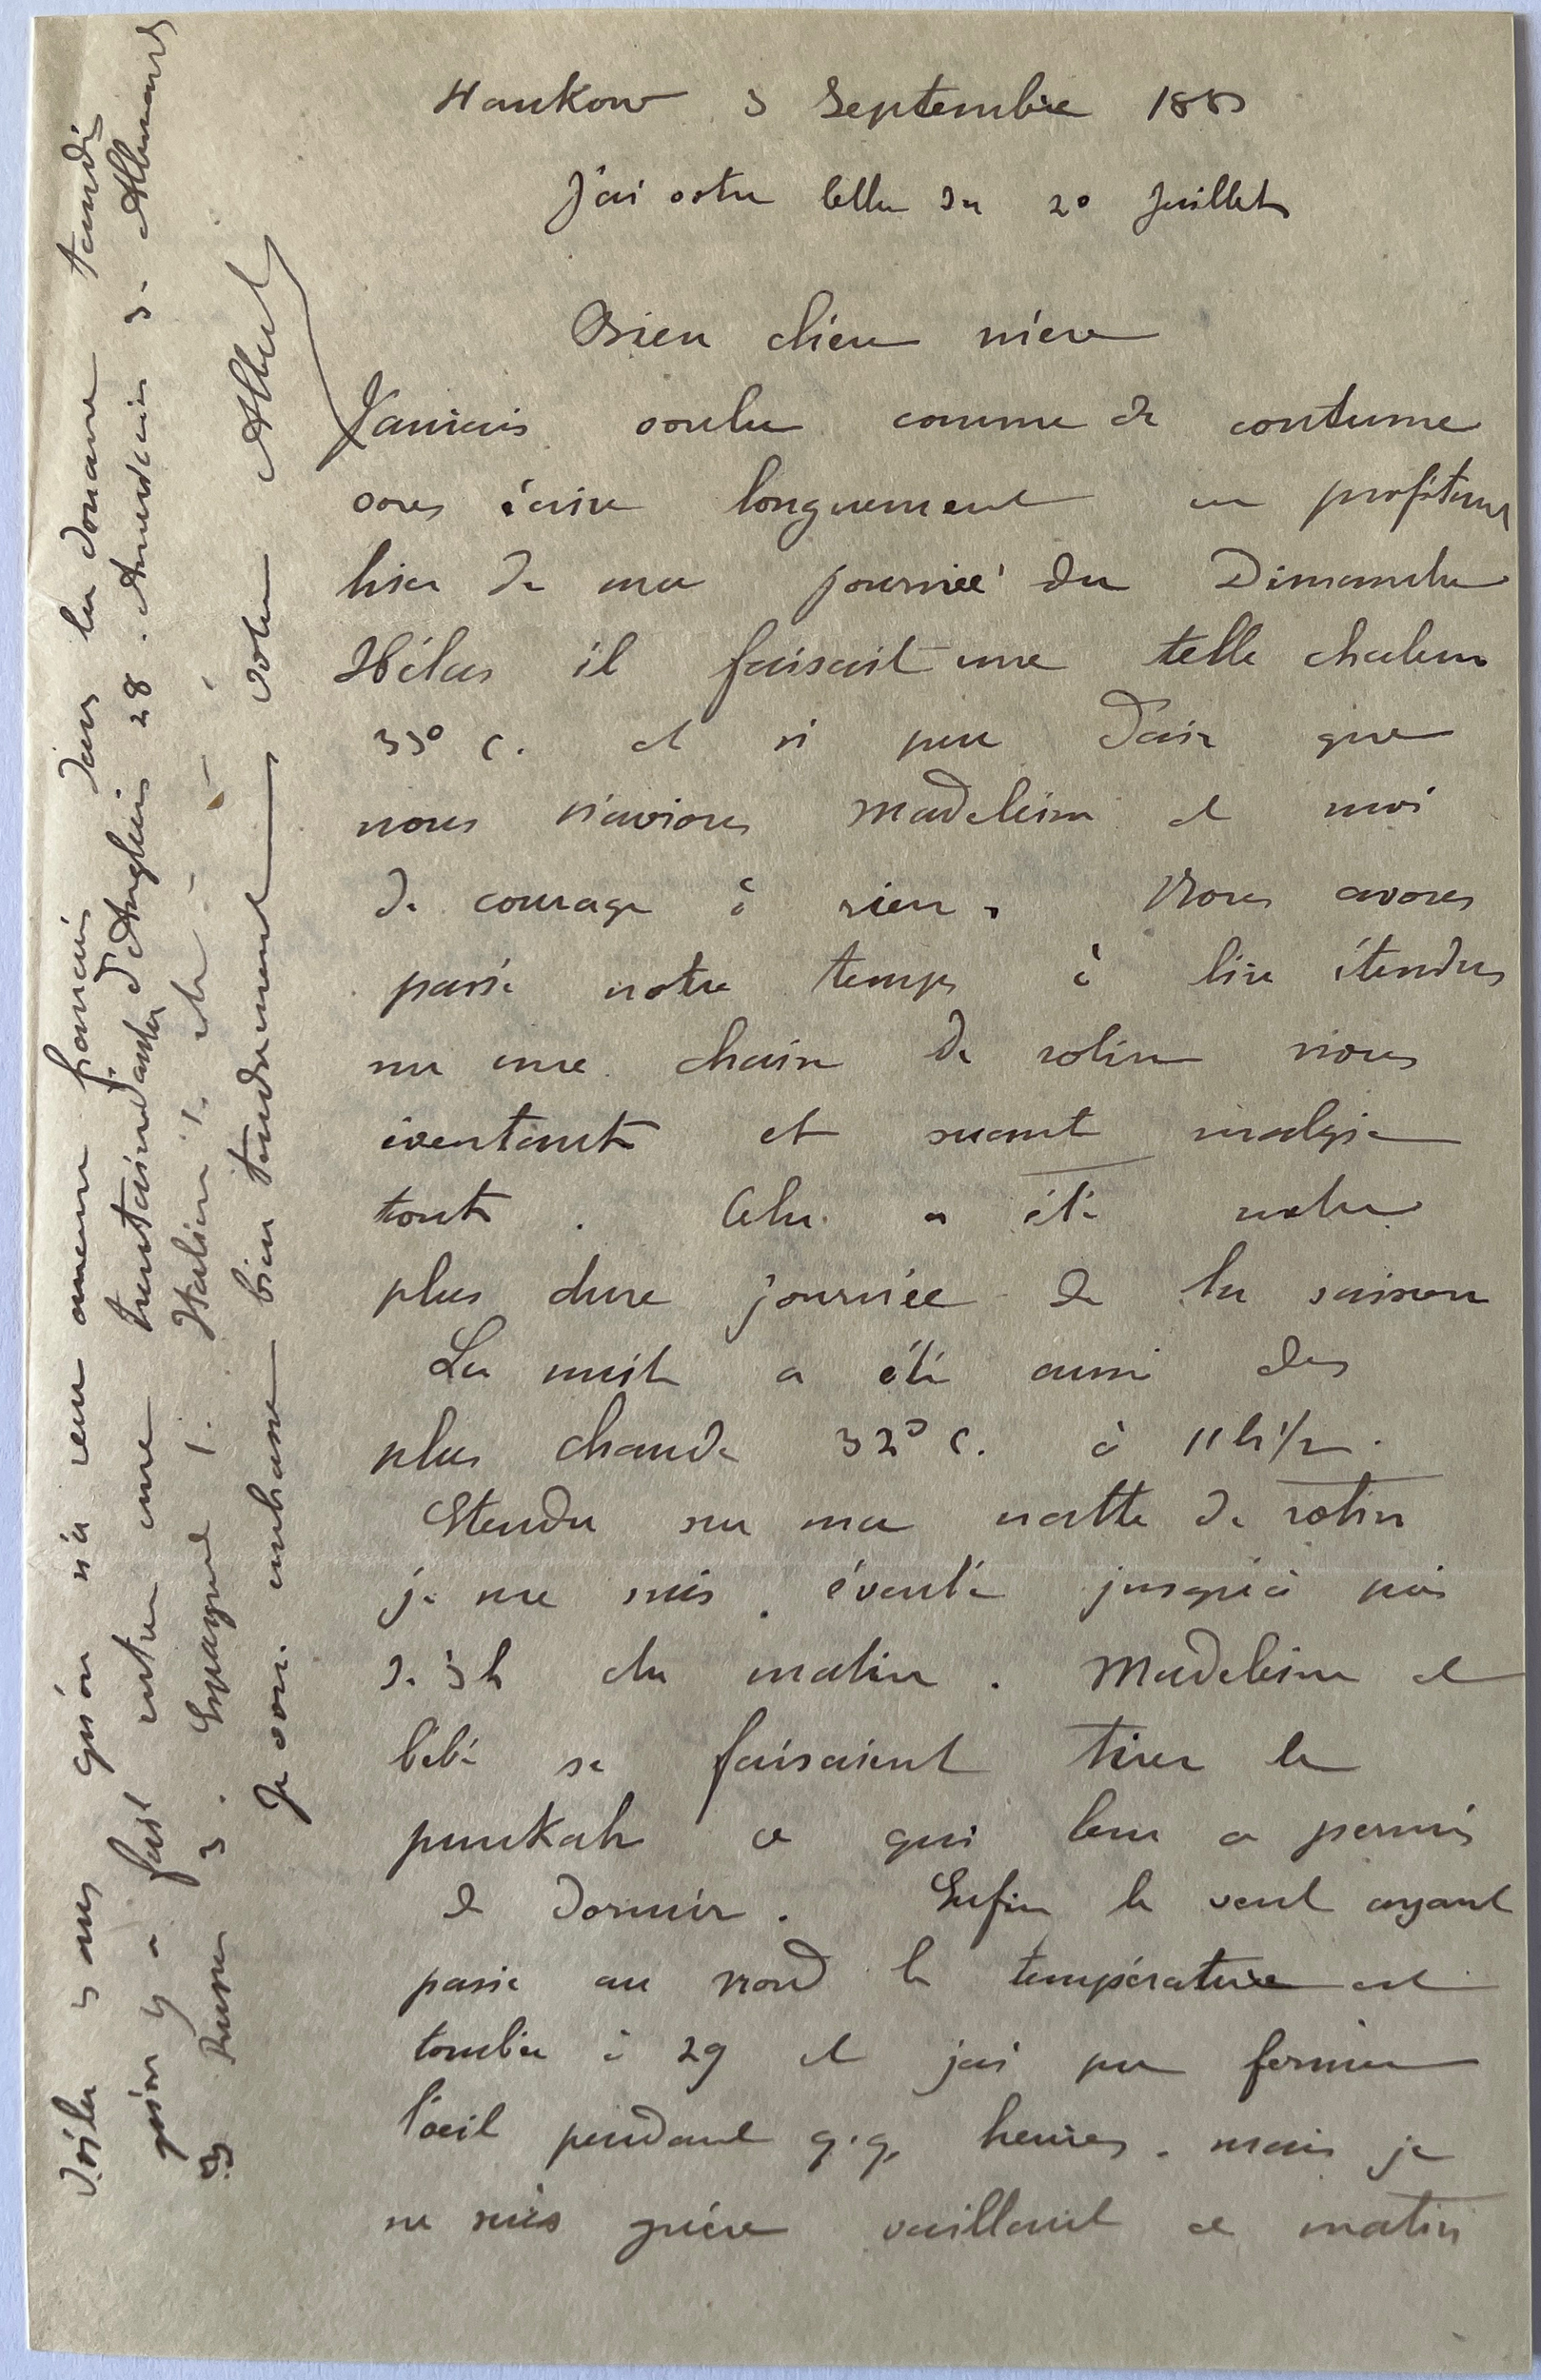 Hankow 3 Septembre 188
J'ai votre lettre du 20 Juillet
Bien chère mère
J'aurais voulu comme de coutume
vous écrire longuement en profitant
hier de ma journée du Dimanche
Hélas il faisait une telle chaleur
35° C. et si peu d'air que
nous n'avions Madeleine et moi
de courage à rien. Nous avons
passé notre temps à lire étendus
sur une chaise de rotin nous
éventant et suant malgré
tout. Cela a été notre
plus dure journée de la saison
La nuit a été aussi des
plus chaude 32° C. à 11 h 1/2.
Etendu sur ma natte de rotin
je me suis éventé jusqu'à près
de 3 h du matin. Madeleine et
bébé se faisaient tirer le
punkah ce qui leur a permis
de dormir. Enfin le vent ayant
passé au nord la température est
tombée à 29 et j'ai pu fermer
l'oeil pendant q.q. heures. mais je
ne suis guère vaillant ce matin
Voila 3 ans qu'on n'a reçu aucun français dans la douane tandis
qu'on y a fait entrer une trentaine d'Anglais 28. Américains 3. Allemands
Russes 3. Espagnol 1. Italien 1. etc - - -
Je vous embrasse bien tendrement votre Albert